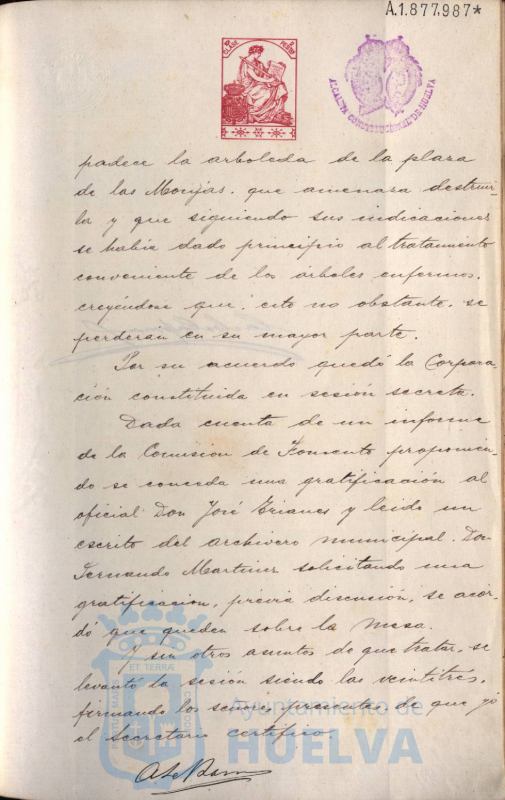 A.1.877,987*
CLASE
ALCALDIA CONSTITUCIONAL DE HUELVA
padece la arboleda de la plaza
de las Monjas, que amenaza destruir-
la y que siguiendo sus indicaciones
se habia dado principio al tratamiento
conveniente de los árboles enfermos,
creyéndose que, esto no obstante, se
perderán en su mayor parte.
Por su acuerdo quedó la Corpora-
ción constituida en sesión secreta.
Dada cuenta de un informe
de la Comision de Fomento proponien-
do se conceda una gratificación al
oficial Don José Trianes y leido un
escrito del archivero municipal Don
Fernando Martinez solicitando una
gratificacion, prévia discusión, se acor-
dó que queden sobre la mesa.
Y sin otros asuntos de que tratar, se
levantó la sesión siendo las veintitrés,
firmando los señores presentes de que yo
el Secretario certifico.
PORTUS MARIS
ET TERRÆ
CUSTODIA
Ayuntamiento de
HUELVA